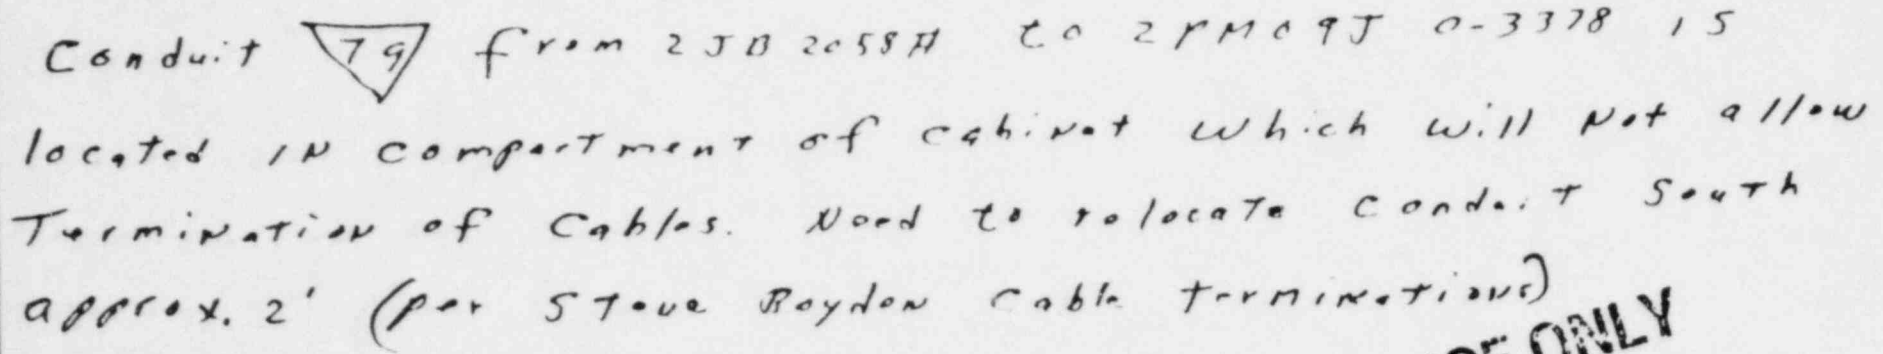 Conduit 79 from 2JB2058A to 2PM09J 0-3378 is
located in compartment of cabinet which will not allow
Termination of Cables. Need to relocate conduit South
approx. 2' (per Steve Roydon Cable terminations)
ONLY